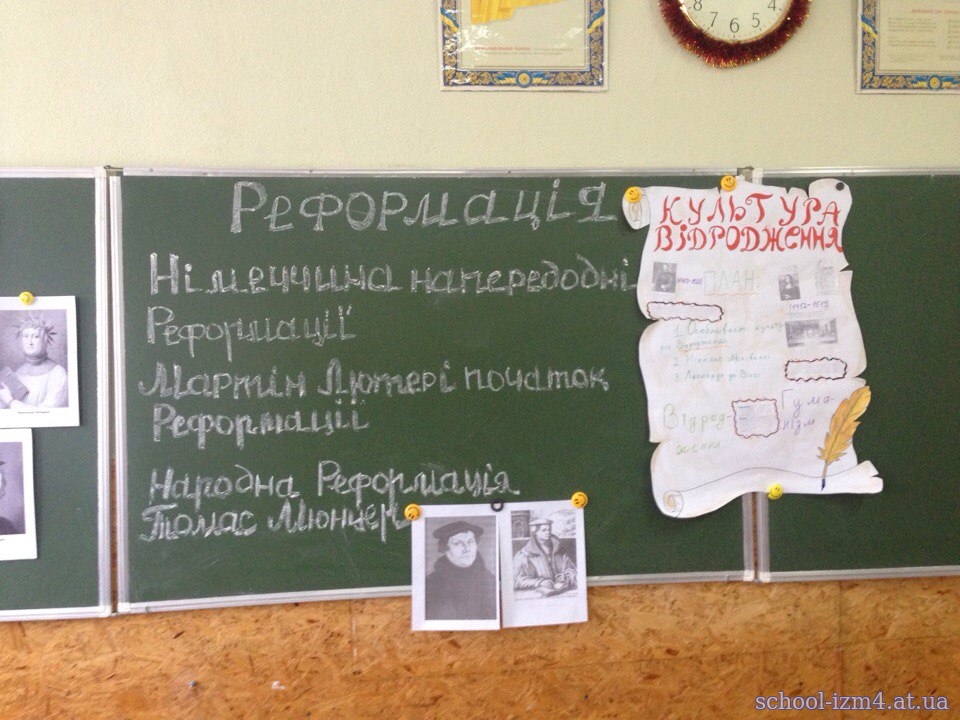 8 7 6 5 4
Реформація
Німеччина напередодні
Реформації
Мартін Лютер і початок
Реформації
Народна Реформація
Томас Мюнцер
КУЛЬТУРА
ВІДРОДЖЕННЯ
ПЛАН:
(1452-1519)
1. Особливості культу-
ри Відродження
3. Леонардо да Вінчі
Відрод-
ження
Гума-
нізм
school-izm4.at.ua